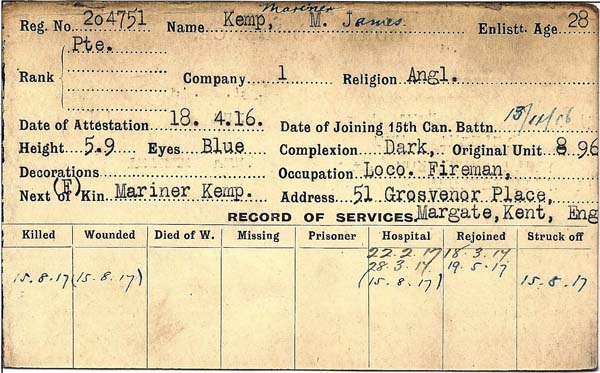 Mariner
Reg. No. 204751 Name Kemp, M. James Enlistt. Age 28
Rank Pte.
Company 1 Religion Angl.
Date of Attestation 18. 4.16. Date of Joining 15th Can. Battn. 13/11/16
Height 5.9 Eyes Blue Complexion Dark, Original Unit 8 96
Decorations Occupation Loco. Fireman,
Next of (F) Kin Mariner Kemp. Address 51 Grosvenor Place,
RECORD OF SERVICES Margate, Kent, Eng
Killed Wounded Died of W. Missing Prisoner Hospital Rejoined Struck off
22.2.17 18.3.17
28.3.17 19.5.17
15.8.17 (15.8.17) (15.8.17) 15.8.17